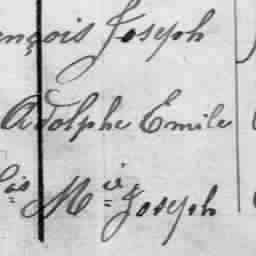 ançois Joseph
Adolphe Emile
is Mie Joseph